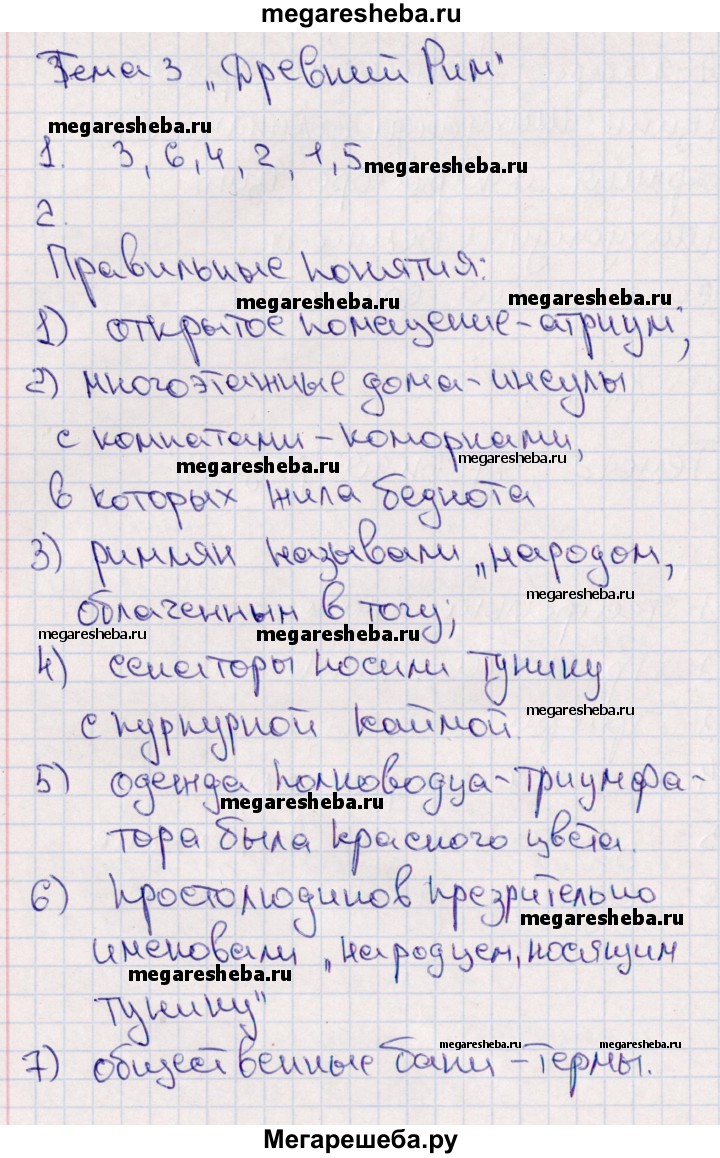 megaresheba.ru
Тема 3 „Древний Рим"
megaresheba.ru
1. 3, 6, 4, 2, 1, 5
megaresheba.ru
2.
Правильные понятия:
megaresheba.ru
megaresheba.ru
1) открытое помещение-атриум;
2) многоэтажные дома-инсулы
с комнатами-коморками,
megaresheba.ru
megaresheba.ru
в которых жила беднота
3) римлян называли „народом,
megaresheba.ru
облаченным в тогу;
megaresheba.ru
megaresheba.ru
4) сенаторы носили тунику
с пурпурной каймой.
megaresheba.ru
5) одежда полководца-триумфа-
megaresheba.ru
тора была красного цвета.
6) простолюдинов презрительно
megaresheba.ru
именовали „народцем, носящим
megaresheba.ru
тунику"
megaresheba.ru
megaresheba.ru
7) общественные бани-термы.
Мегарешеба.ру